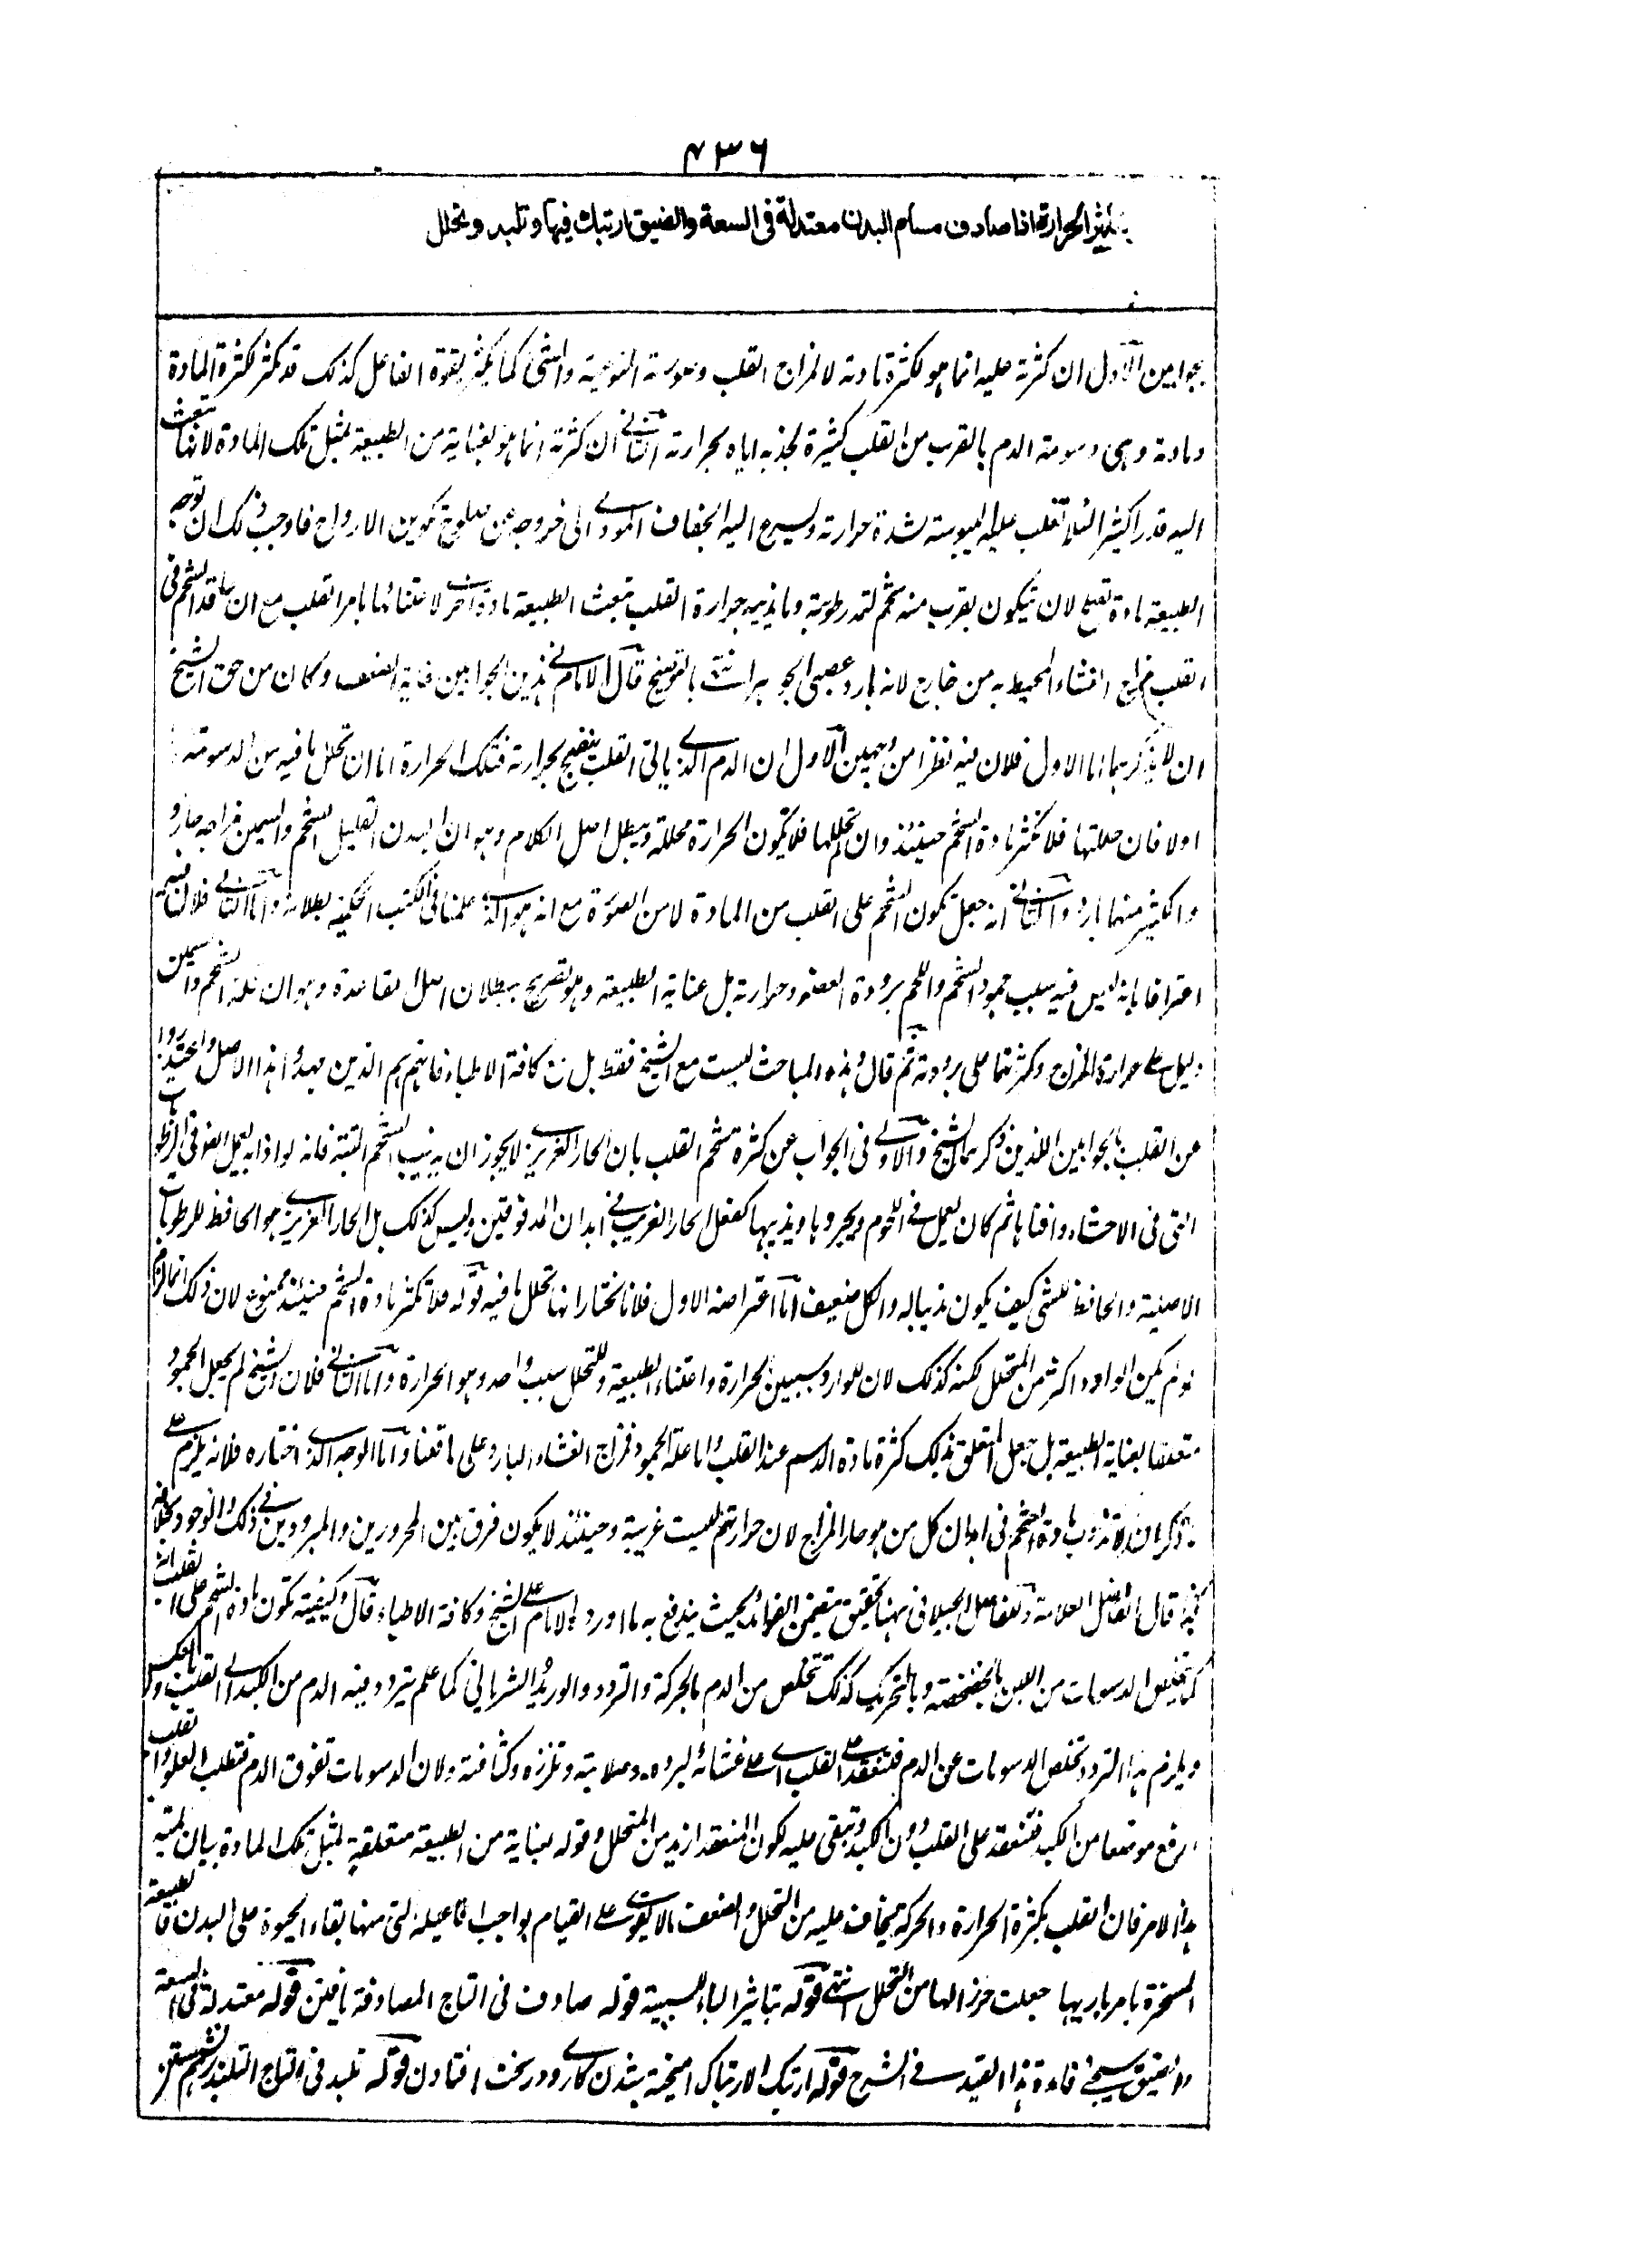 ٤٣٦
بتاثير الحرارة اذا صادف مسام البدن معتدلة فى السعة والضيق ارتبك فيها وتلبد وتحلل
بجوابين الاول ان كثرته عليه انما هو لكثرة مادته لا لمزاج القلب وصورته النوعية والشئ كما يكثر بقوة الفاعل كذلك قد يكثر لكثرة المادة
ومادته وهى دسومة الدم بالقرب من القلب كثيرة لجذبه اياه بحرارته الثانى ان كثرته انما هو لعناية من الطبيعة بمثل تلك المادة لانها تبعث
اليه قدرا كثيرا لئلا تغلب عليه اليبوسة لشدة حرارته ويسرع اليه الجفاف المودى الى خروجه عن صلوح تكوين الارواح فاوجب ذلك ان توجه
الطبيعة مادة تصلح لان يتكون بقرب منه شحم لتمد رطوبته وما يذيبه حرارة القلب تبعث الطبيعة مادة اخرى لاعتنائها بامر القلب مع ان عاقد الشحم فى
القلب مزاج الغشاء المحيط به من خارج لانه بارد عصبى الجوهر انتهى بالتوضيح قال الامام فى هذين الجوابين غاية الضعف وكان من حق الشيخ
ان لا يذكرهما اما الاول فلان فيه نظرا من وجهين الاول ان الدم الذى ياتى القلب ينضج بحرارته فتلك الحرارة اما ان تحلل ما فيه من الدسومة
اولا فان حللتها فلا تكثر مادة الشحم حينئذ وان لم تحللها فلا يكون الحرارة محللة ويبطل اصل الكلام وهو ان البدن القليل الشحم والسمين مزاجه حار و
والكثير منهما بارد والثانى انه جعل تكون الشحم على القلب من المادة لا من الصورة مع انه هو الذى علمنا فى الكتب الحكمية بطلانه واما الثانى فلان فيه
اعترافا بانه ليس فيه سبب جمود الشحم واللحم برودة العضو وحرارته بل عناية الطبيعة وهو تصريح ببطلان اصل القاعدة وهو ان قلة الشحم والسمين
دليل على حرارة المزاج وكثرتهما على برودته ثم قال وهذه المباحث ليست مع الشيخ فقط بل مع كافة الاطباء فانهم هم الذين مهدوا هذا الاصل واعتذروا
عن القلب بالجوابين اللذين ذكرهما الشيخ والاولى فى الجواب عن كثرة شحم القلب بان الحار الغريزى لا يجوز ان يذيب الشحم البتة فانه لو اذابه لعمل الضو فى الرطوبات
التى فى الاحشاء وافناها ثم كان يعمل فى اللحوم ويجردها ويذيبها كفعل الحار الغريب فى ابدان المدقوقين وليس كذلك بل الحار الغريزى هو الحافظ للرطوبات
الاصلية والحافظ للشئ كيف يكون مذيبا له والكل ضعيف اما اعتراضه الاول فلانا نختار انها تحلل ما فيه قوله فلا تكثر مادة الشحم حينئذ ممنوع لان ذلك انما يلزم
لو لم يكن الوارد اكثر من المتحلل لكنه كذلك لان للوارد سببين الحرارة واعتناء الطبيعة وللتحلل سبب واحد وهو الحرارة واما الثانى فلان الشيخ لم يجعل الجمود
متعلقا بعناية الطبيعة بل جعل المتعلق بذلك كثرة مادة الدسم عند القلب واما علة الجمود فمزاج الغشاء البارد على ما قلنا واما الوجه الذى اختاره فلانه يلزم على
ما ذكر ان لا تذوب مادة الشحم فى ابدان كل من هو حار المزاج لان حرارتهم ليست غريبة وحينئذ لا يكون فرق بين المحرورين والمبرودين فى ذلك والوجود بخلافه
قال الفاضل العلامة وللفاضل الجيلانى ههنا تحقيق متضمن الفوائد بحيث يندفع به ما اورده الامام على الشيخ وكافة الاطباء قال وكيفية تكون مادة الشحم على القلب انه
كما تخلص الدسومات من اللبن بالخضخضة وبالتحريك كذلك تتخلص من الدم بالحركة والتردد والوريد الشريانى كما علم يتردد فيه الدم من الكبد الى القلب وبالعكس
ويلزم هذا التردد تخلص الدسومات عن الدم فتنعقد على القلب اى على غشائه لبرده وصلابته وتلززه وكثافته ولان الدسومات تفوق الدم فتطلب العلو والقلب
ارفع موضعا من الكبد فتنعقد على القلب دون الكبد وتبقى عليه لكون المنعقد ازيد من المتحلل وقوله بعناية من الطبيعة متعلقة بمثل تلك المادة بيان لمية
هذا الامر فان القلب بكثرة الحرارة والحركة يخاف عليه من التحلل والضعف مالا يقوى على القيام بواجب افاعيله التى منها بقاء الحيوة على البدن فالطبيعة
المسخرة بامر باريها جعلت حرزا لها من التحلل انتهى قوله بتاثير الباء للسببية قوله صادف فى التاج المصادفة يافتن قوله معتدلة فى السعة
والضيق سيجئ فائدة هذا القيد فى الشرح قوله ارتبك الارتباك آميخته شدن كارى ودر سخت افتادن قوله تلبد فى التاج التلبد برهم نشستن